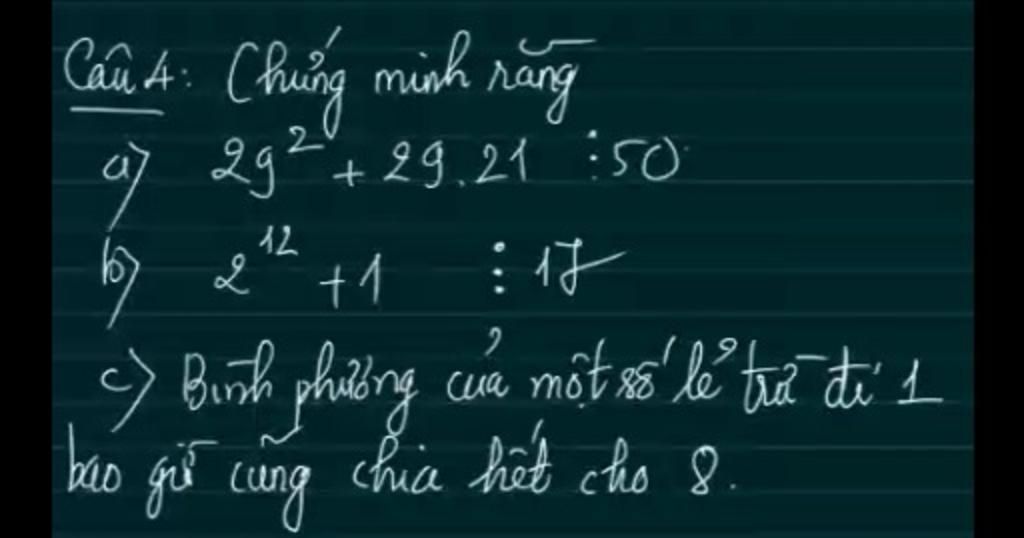 Câu 4: Chứng minh rằng
a) 29² + 29.21 ⋮ 50
b) 2¹² + 1 ⋮ 17
c) Bình phương của một số lẻ trừ đi 1
bao giờ cũng chia hết cho 8.